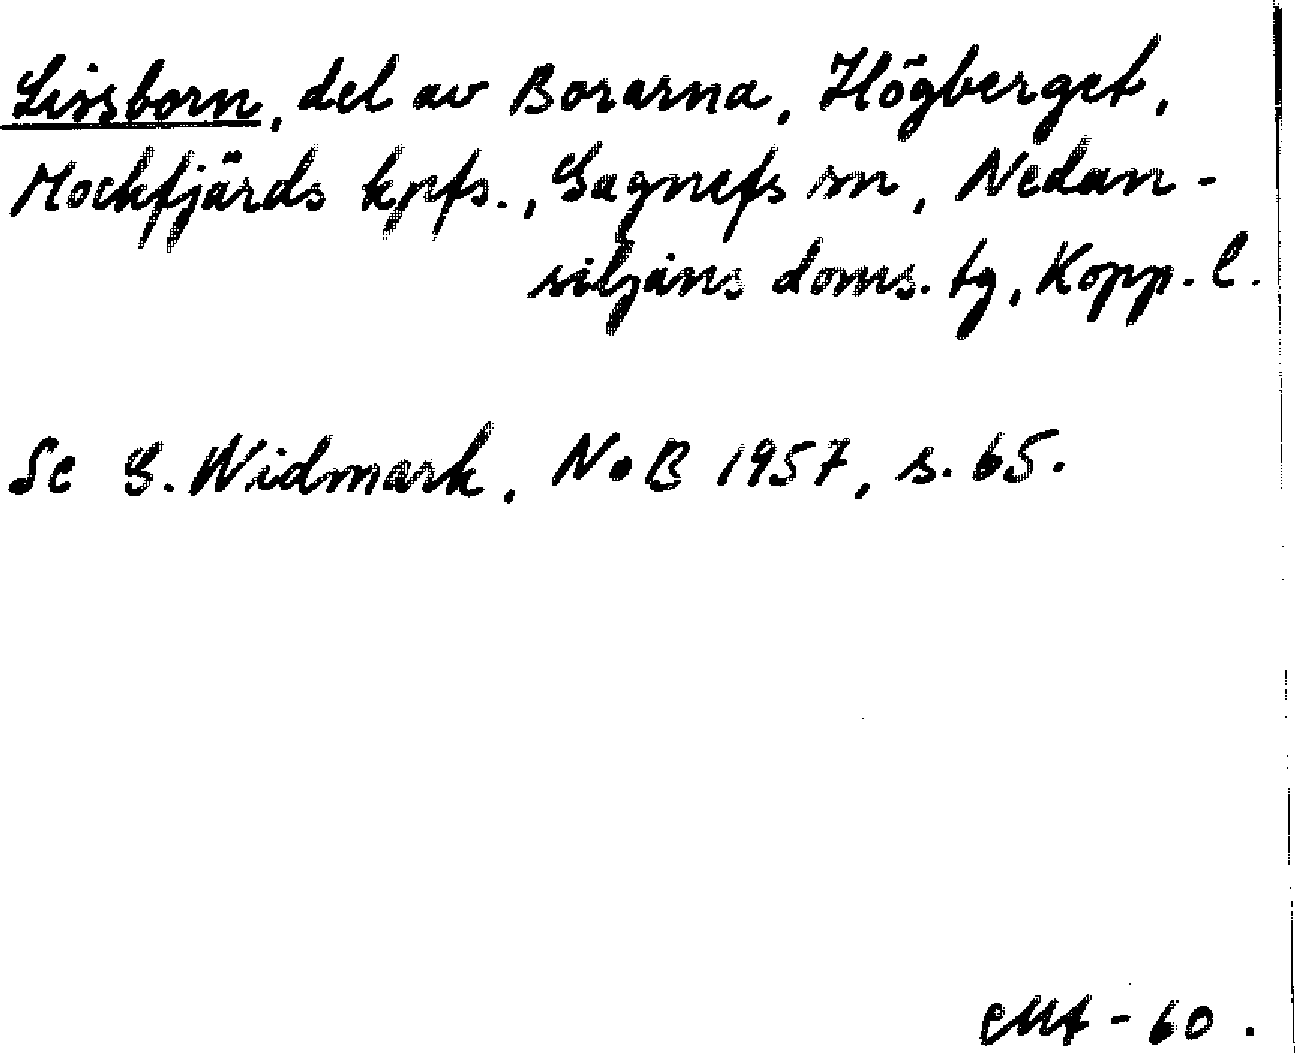 Lissborn, del av Borarna, Högberget,
Mockfjärds kpfs., Gagnefs sn, Nedan-
siljans doms. tg, Kopp. l.
Se G. Widmark, NoB 1957, s. 65.
-60.